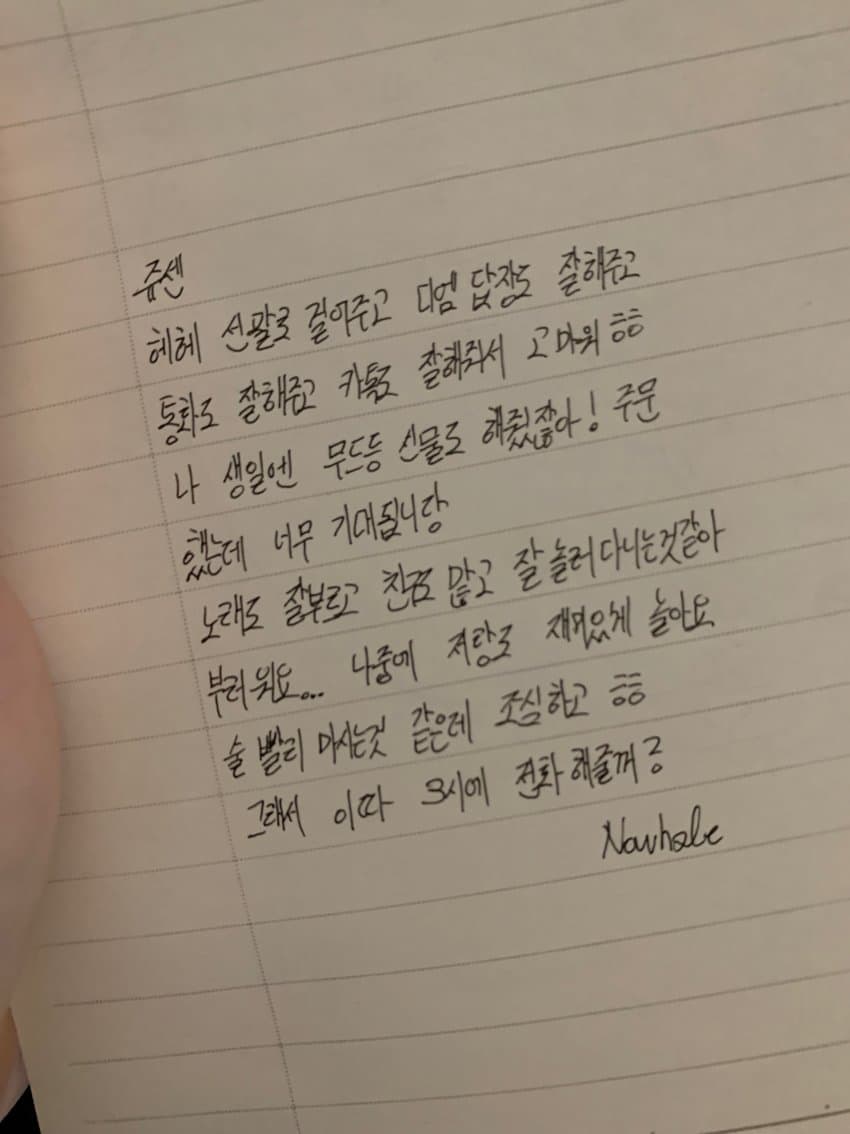 쥬센
헤헤 선팔로 걸어주고 디엠 답장도 잘해주고
통화도 잘해주고 카톡도 잘해줘서 고마워 ㅎㅎ
나 생일엔 무드등 선물도 해줬잖아! 주문
했는데 너무 기대됩니당
노래도 잘부르고 친구도 많고 잘 놀러다니는것같아
부러워요... 나중에 저랑도 재미있게 놀아요
술 빨리 마시는것 같은데 조심하고 ㅎㅎ
그래서 이따 3시에 전화 해줄꺼